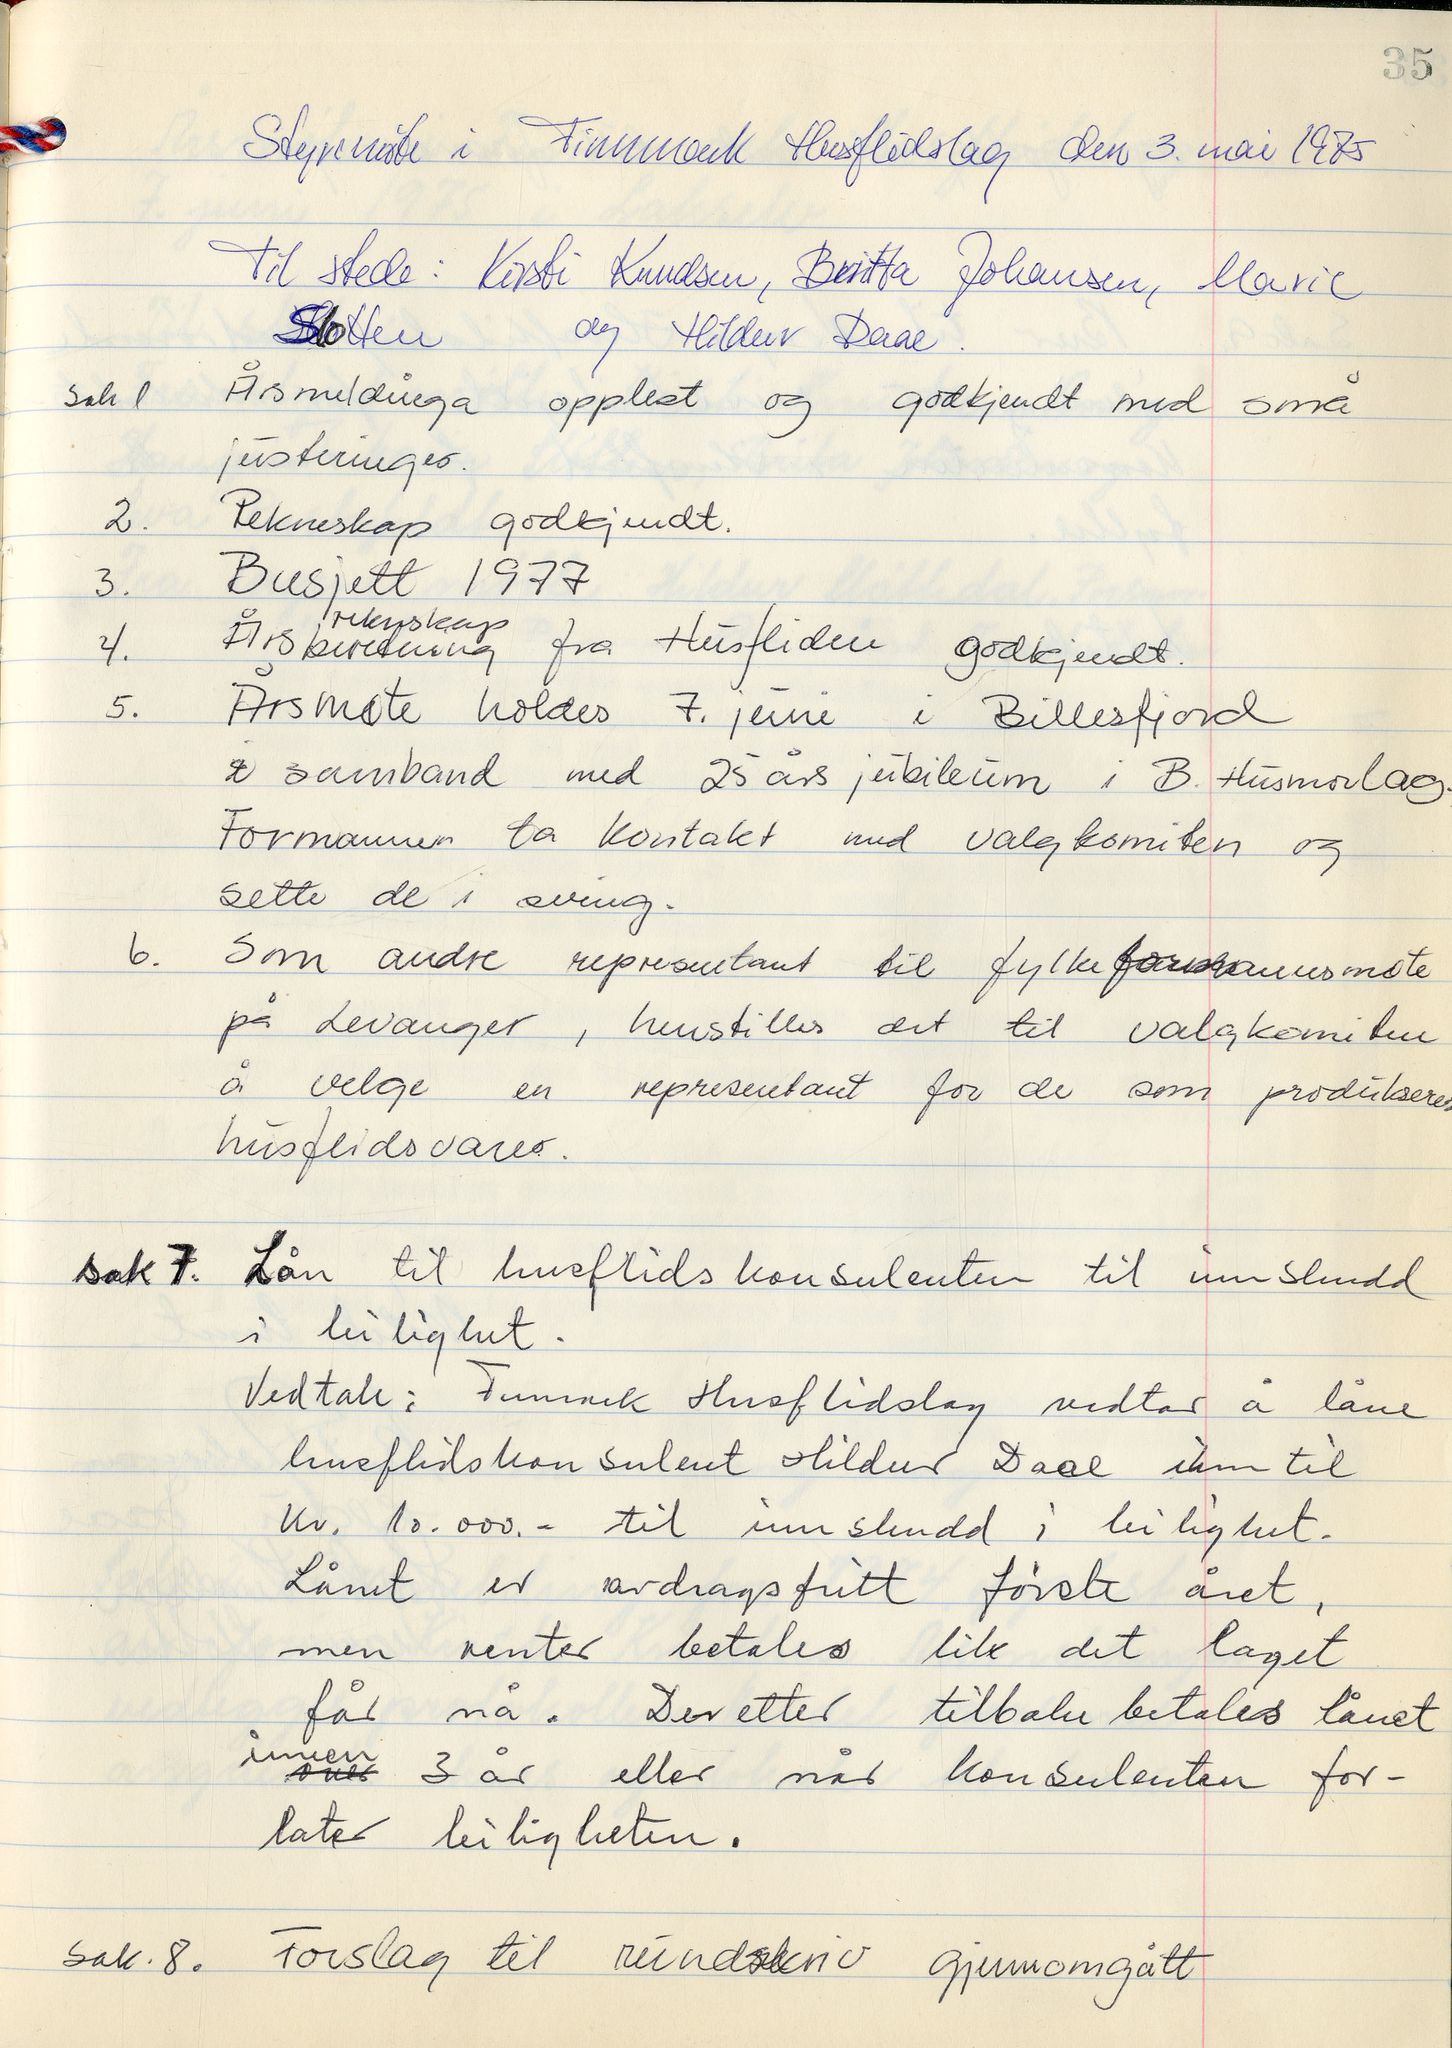 35
Styremöte i Finnmark Husflidslag den 3. mai 1975
Til stede: Kirsti Knudsen, Britta Johansen, Marie
Slotten og Hildur Daae.
Sak 1 Årsmeldinga opplest og godkjendt med små
justeringer.
2. Rekneskap godkjendt.
3. Busjett 1977
rekneskap
4. Årsberetning fra Husfliden godkjendt.
5. Årsmøte holdes 7. juni i Billesfjord
i samband med 25 års jubileum i B. Husmorlag.
Formannen ta kontakt med valgkomiten og
sette de i sving.
6. Som andre representant til fylkeformannsmøte
på Levanger, henstilles det til valgkomiten
å velge en representant for de som produkserer
husflidsvarer.
sak 7. Lån til husflidskonsulenten til innskudd
i leilighet.
Vedtak: Finnmark Husflidslag vedtar å låne
husflidskonsulent Hildur Daae inntil
Kr. 10.000.- til innskudd i leilighet.
Lånet er avdragsfritt første året,
men renter betales lik det laget
får nå. Deretter tilbake betales lånet
innen
over 3 år eller når konsulenten for-
later leiligheten.
sak. 8. Forslag til rundskriv gjennomgått